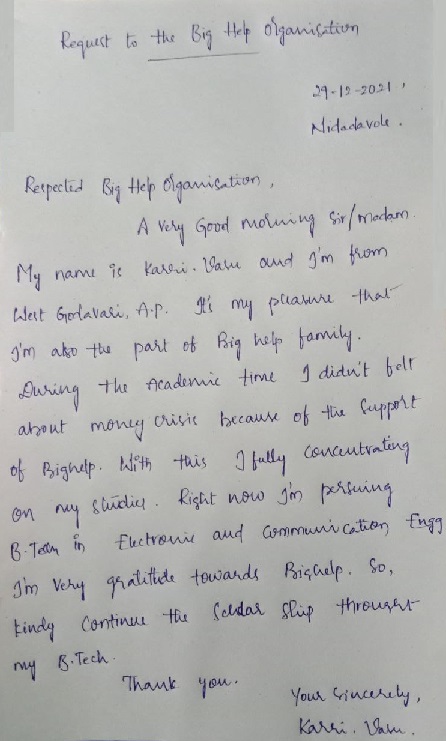 Request to the Big Help Organisation
29-12-2021.
Nidadavole.
Respected Big Help Organisation,
A Very Good morning Sir/madam.
My name is Karri. Vasu and I'm from
West Godavari, A.P. It's my pleasure that
I'm also the part of Big help family.
During the Academic time I didn't felt
about money crisis because of the Support
of Bighelp. With this I fully concentrating
on my studies. Right now I'm persuing
B.Tech in Electronic and Communication Engg
I'm very gratitude towards Bighelp. So,
kindy continue the Scholar ship throught
my B.Tech.
Thank you.
Your sincerely,
Karri. Vasu.